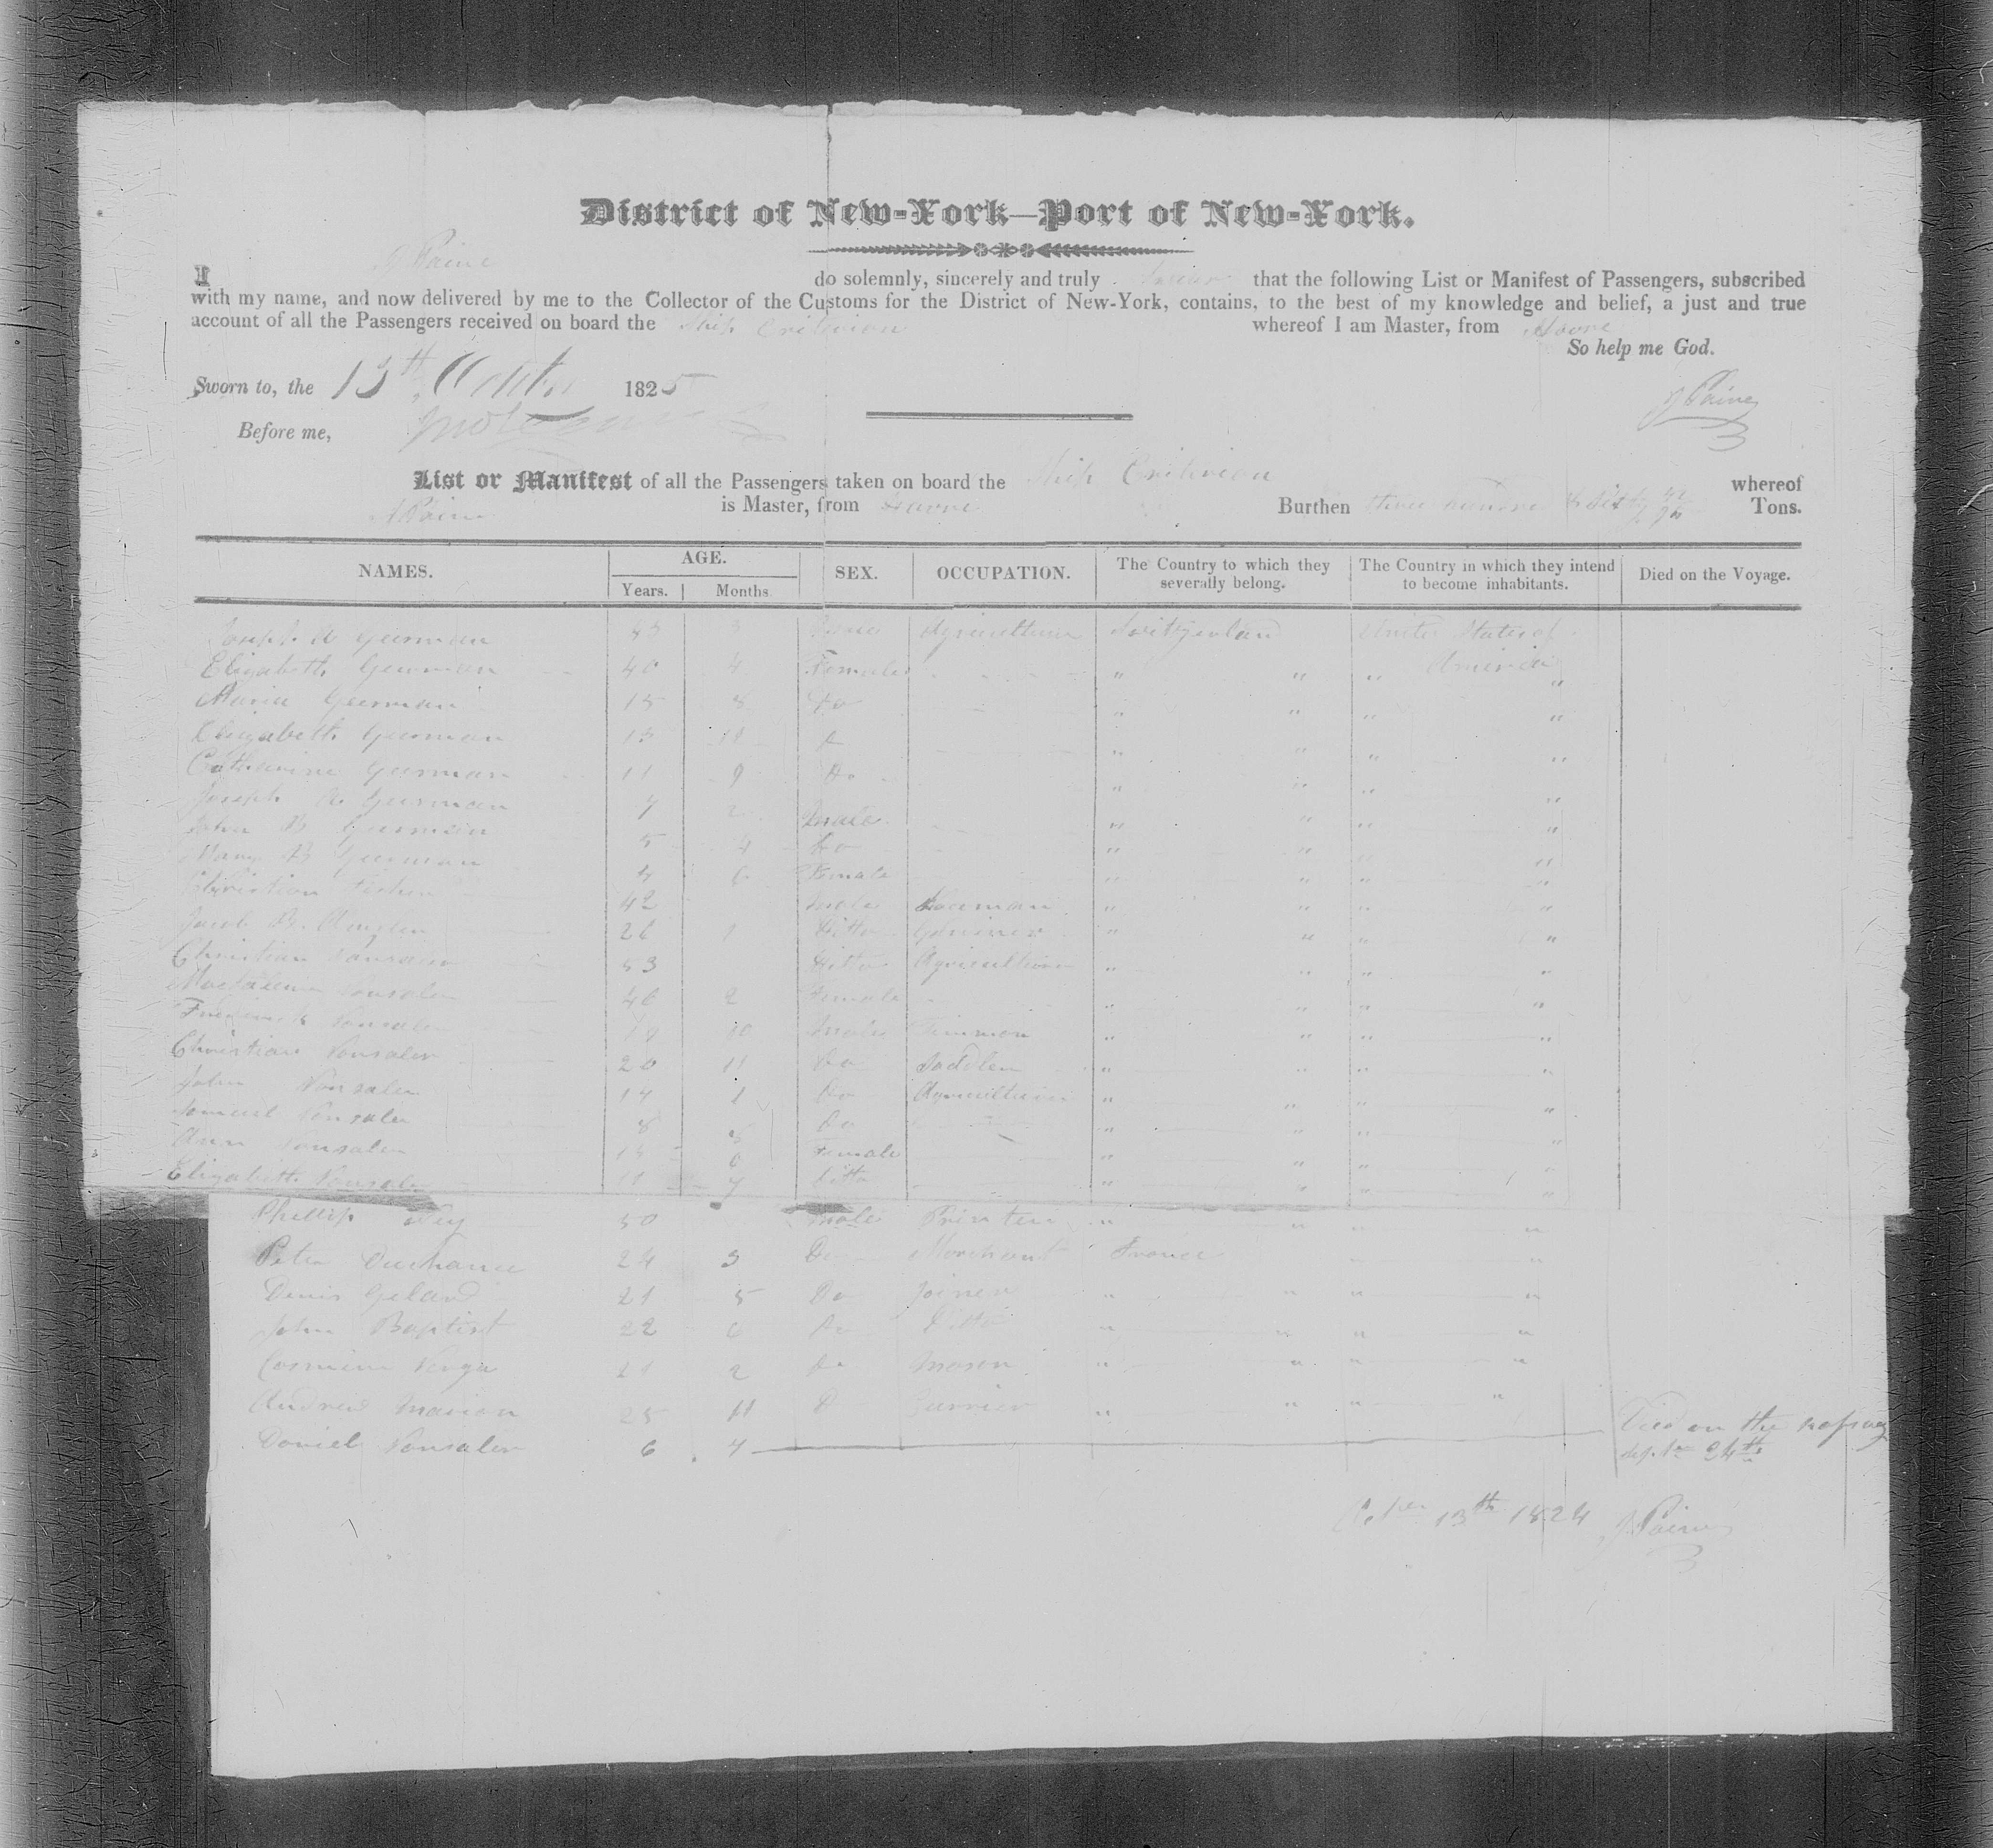 District of New-York—Port of New-York.
J Paine
I do solemnly, sincerely and truly swear that the following List or Manifest of Passengers, subscribed
with my name, and now delivered by me to the Collector of the Customs for the District of New-York, contains, to the best of my knowledge and belief, a just and true
account of all the Passengers received on board the Ship Criterion whereof I am Master, from Havre
So help me God.
Sworn to, the 13th October 1825
J Paine
Before me,
List or Manifest of all the Passengers taken on board the Ship Criterion whereof
J Paine is Master, from Havre Burthen three hundred & sixty Tons.
NAMES. AGE. SEX. OCCUPATION. The Country to which they severally belong. The Country in which they intend to become inhabitants. Died on the Voyage.
Years. Months
Joseph A Gusman 43 Male Agriculturer Switzerland United States of
Elizabeth Gusman 40 4 Female " " " America "
Maria Gusman 15 8 Do " " " "
Elizabeth Gusman 13 Do " " " "
Catharine Gusman 11 9 Do " " " "
Joseph A. Gusman 7 2 Male " " " "
John B Gusman 5 4 Do " " " "
Mary B Gusman 4 6 Female " " " "
Christian 42 Male " " " "
Jacob 26 1 Ditto " " " "
Christian Vonsalen 53 Ditto Agriculturer " " " "
Magdalena Vonsalen 46 2 Female " " " "
Frederick Vonsalen 10 Male " " " "
Christian Vonsalen 20 11 Do Saddler " " " "
John Vonsalen 14 1 Do Agriculturer " " " "
Samuel Vonsalen 8 5 Do " " " "
Ann Vonsalen 13 6 Female " " " "
Elizabeth Vonsalen 11 7 Ditto " " " "
Phillip 50 Male Printer " " " "
Peter Duchance 24 3 Do Merchant France " "
Denis Geland 21 5 Do Joiner " " " "
John Baptist 22 6 Do Ditto " " " "
Verga 21 2 Do Mason " " " "
Andrew Marion 25 11 D " " " "
Daniel Vonsalen 6 4 Died on the passage
Sept 24th
Octber 13th 1824 J Paine